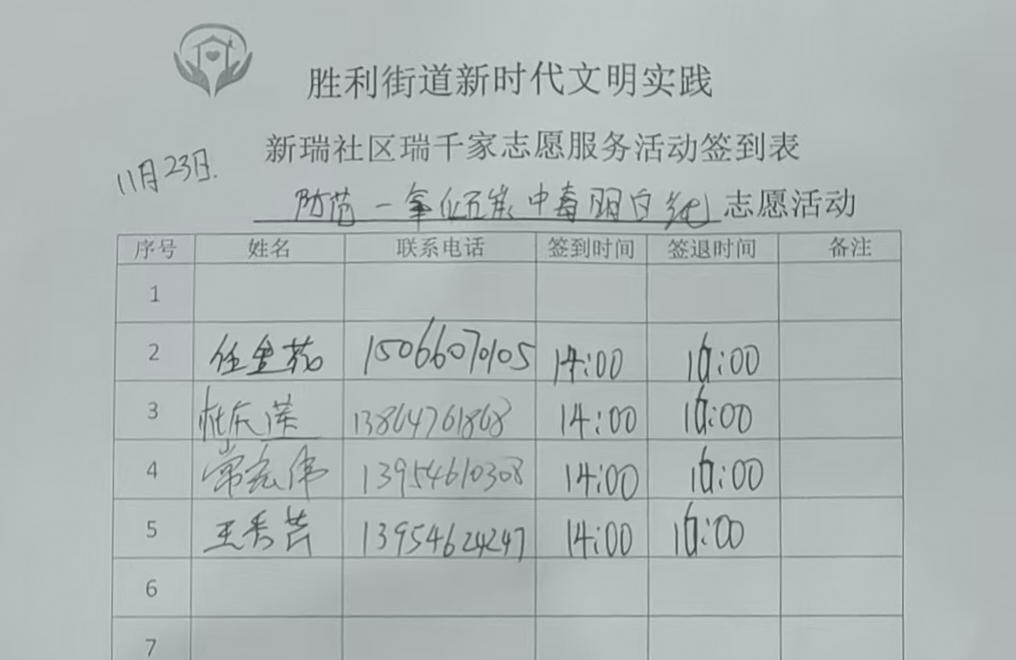 胜利街道新时代文明实践
新瑞社区瑞千家志愿服务活动签到表
11月23日.
防范一氧化碳中毒明白纸志愿活动
序号 姓名 联系电话 签到时间 签退时间 备注
1
2 任金花 15066070105 14:00 16:00
3 杜庆莲 13864761868 14:00 16:00
4 常宏伟 13954610308 14:00 16:00
5 王秀芸 13954624247 14:00 16:00
6
7